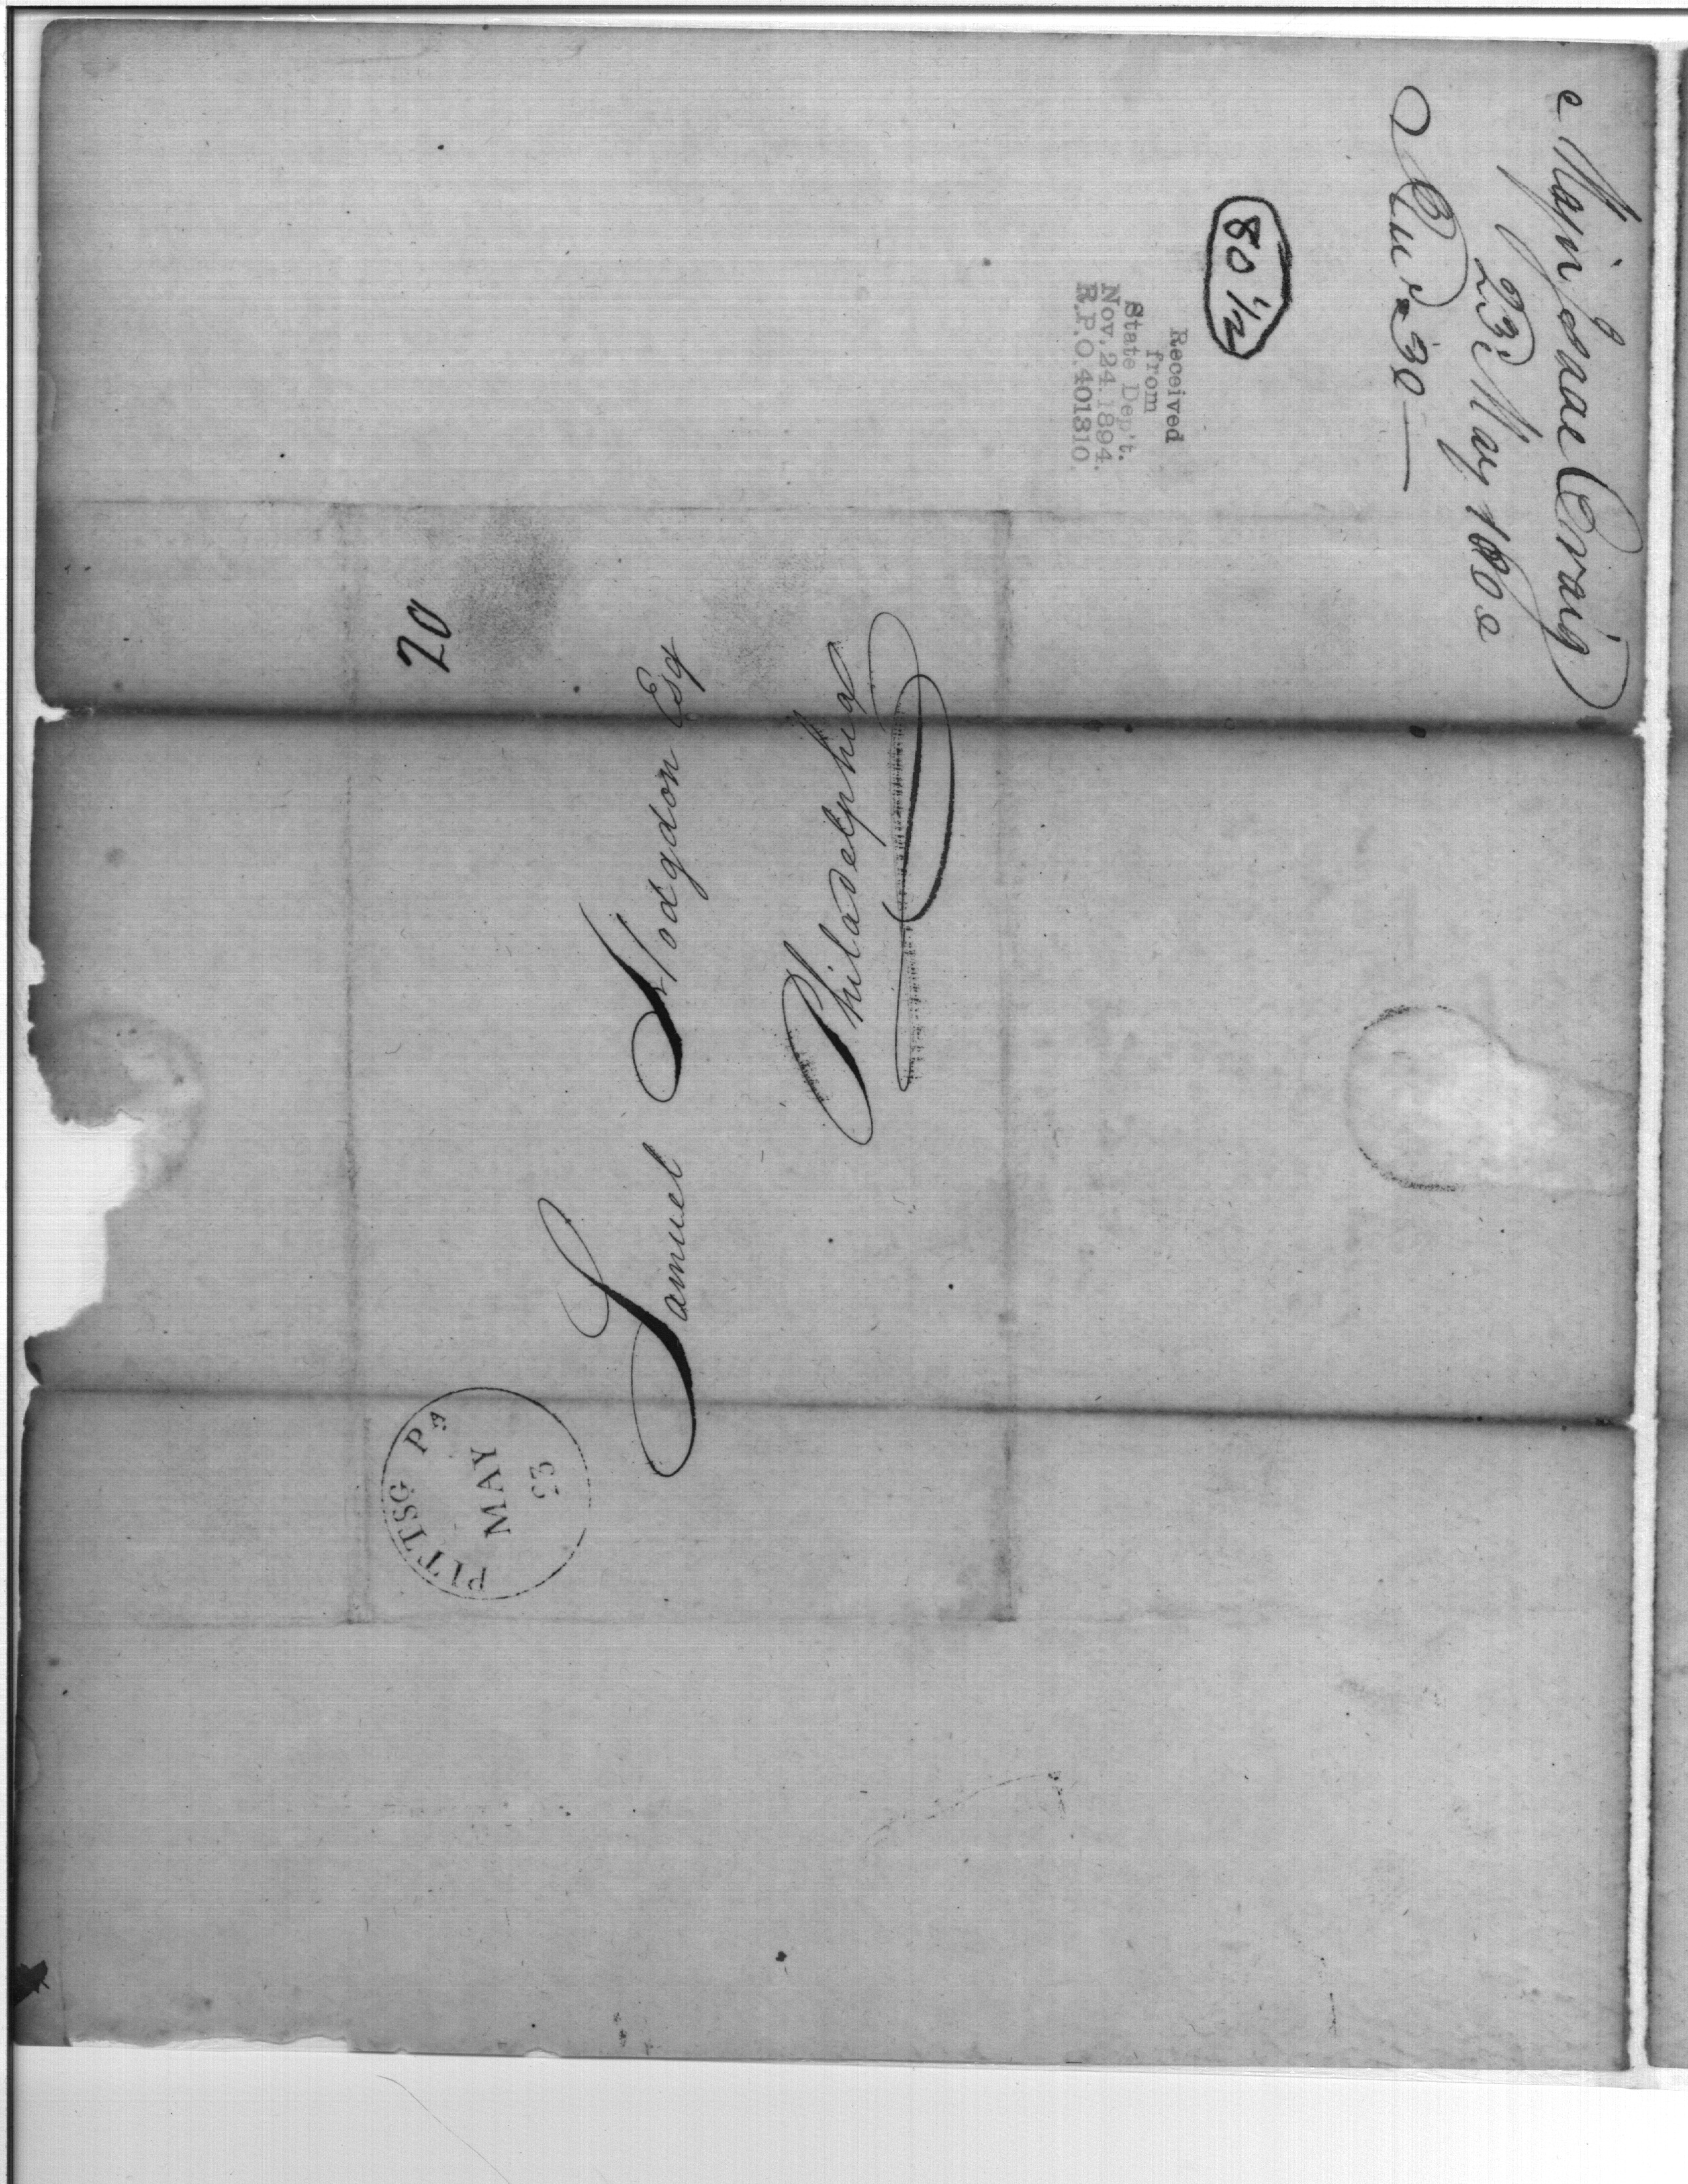 Major Isaac Craig
23d May 1800
30
80 1/2
Received
from
State Dep't.
Nov. 24. 1894.
R.P.O. 401810.
20
PITTSG PA
MAY
23
Samuel Hodgdon Esq
Philadelphia